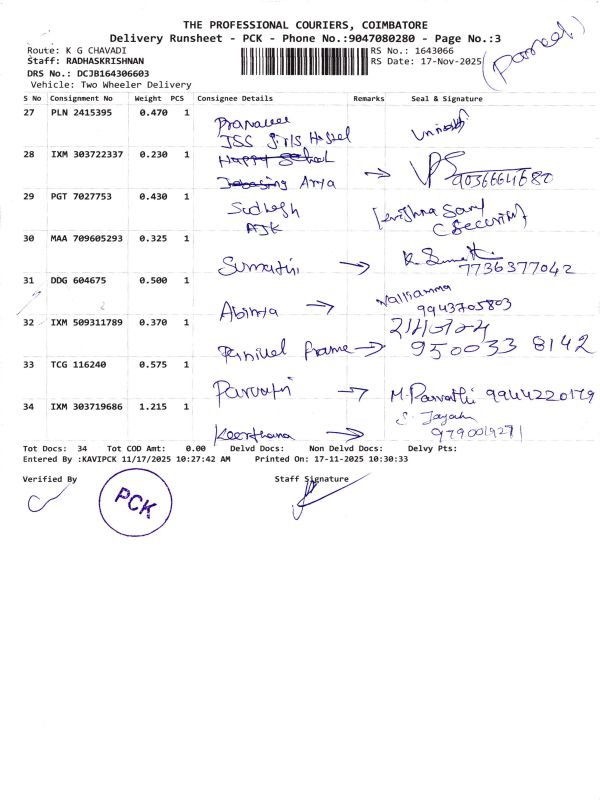 THE PROFESSIONAL COURIERS, COIMBATORE
Delivery Runsheet - PCK - Phone No.:9047080280 - Page No.:3
Route: K G CHAVADI RS No.: 1643066
Staff: RADHASKRISHNAN RS Date: 17-Nov-2025
(Parcel)
DRS No.: DCJB164306603
Vehicle: Two Wheeler Delivery
S No Consignment No Weight PCS Consignee Details Remarks Seal & Signature
27 PLN 2415395 0.470 1
JSS Girls Hostel
28 IXM 303722337 0.230 1
Arya → VPS 9036664680
29 PGT 7027753 0.430 1
Sudhesh
AJK (Security)
30 MAA 709605293 0.325 1
Sumathi →
7736377042
31 DDG 604675 0.500 1
Nallsamma
Abinya → 9943705803
32 IXM 509311789 0.370 1
frame → 950033 8142
33 TCG 116240 0.575 1
Parvathi → M.Parvathi 9944220179
34 IXM 303719686 1.215 1
Keerthana → 9790019271
Tot Docs: 34 Tot COD Amt: 0.00 Delvd Docs: Non Delvd Docs: Delvy Pts:
Entered By :KAVIPCK 11/17/2025 10:27:42 AM Printed On: 17-11-2025 10:30:33
Verified By Staff Signature
PCK